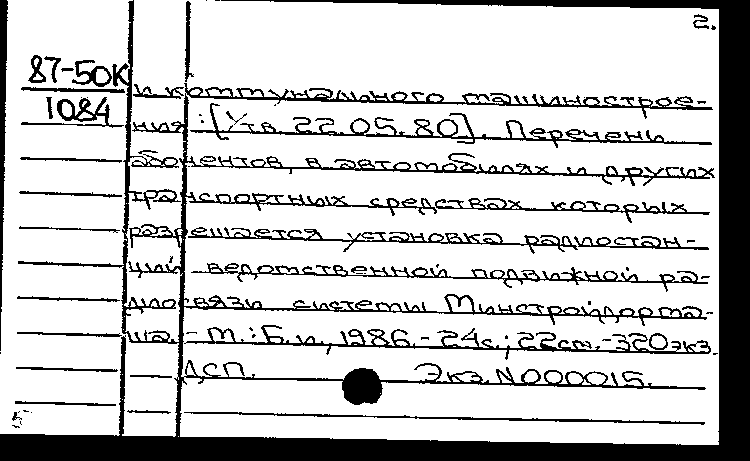 2.
87-50К
1084
и коммунального машинострое-
ния: [Утв. 22.05.80]. Перечень
абонентов, в автомобилях и других
транспортных средствах которых
разрешается установка радиостан-
ций ведомственной подвижной ра-
диосвязи системы Минстройдорма-
ша. - М.: Б.и, 1986. - 24с.; 22см. - 320экз.
ДСП. Экз. N000015.